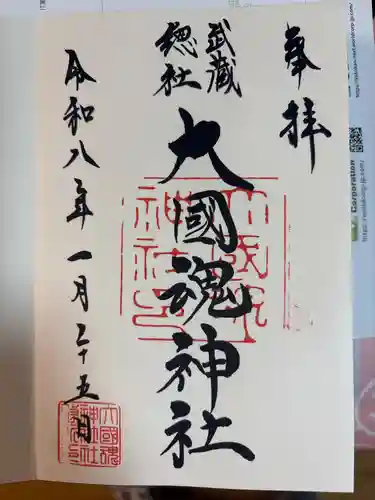 奉拝
武蔵
總社
大國魂神社
令和八年一月二十五日
大國魂
神社
Corporation